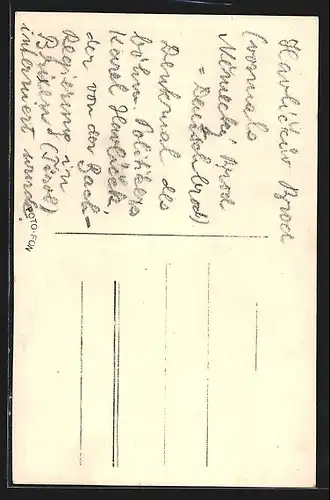 Havlíčkův Brod
(vormals
Německý Brod
= Deutschbrod)
Denkmal des
böhm. Politikers
Karel Havlíček,
der von der Bach-
Regierung in
Brixen (Tirol)
interniert wurde.
FOTO-FON